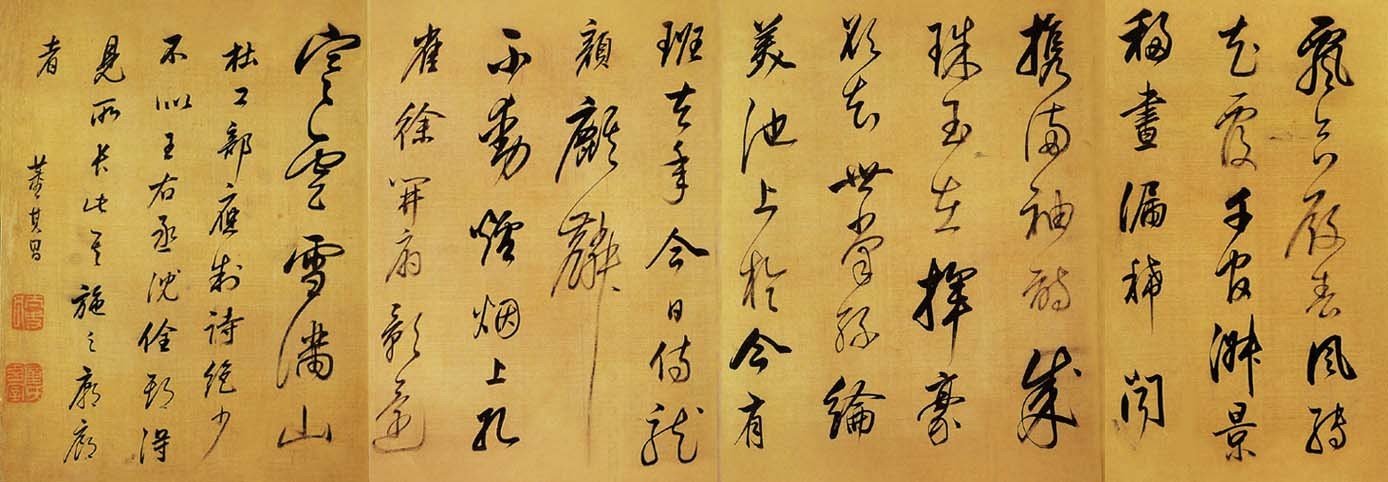 飄合殿春風轉
花覆千官淑景
移晝漏稀聞
攜滿袖詩成
珠玉在揮豪
欲知世掌絲綸
美池上於今有
班去年今日侍龍
顏麒麟
不動爐烟上孔
雀徐開扇影還
寒雲雪滿山
杜工部應制詩絕少
不似王右丞沈佺期得
見所長此其施之廟廊
者
董其昌